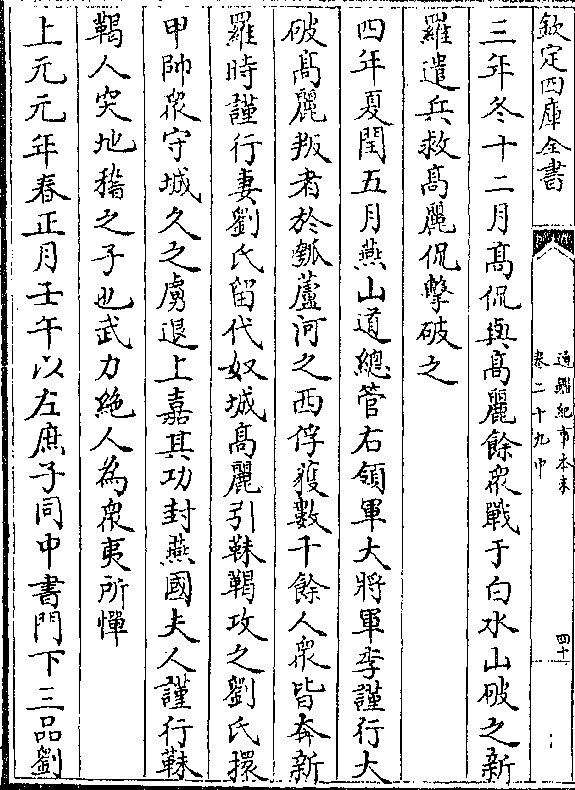 欽定四庫全書
通鑑紀事本末
卷二十九中
四十
三年冬十二月髙侃與髙麗餘衆戰于白水山破之新
羅遣兵救髙麗侃擊破之
四年夏閏五月燕山道總管右領軍大將軍李謹行大
破髙麗叛者於瓠蘆河之西俘獲數千餘人衆皆奔新
羅時謹行妻劉氏留代奴城髙麗引靺鞨攻之劉氏擐
甲帥衆守城久之虜退上嘉其功封燕國夫人謹行靺
鞨人突地稽之子也武力絶人為衆夷所憚
上元元年春正月壬午以左庶子同中書門下三品劉